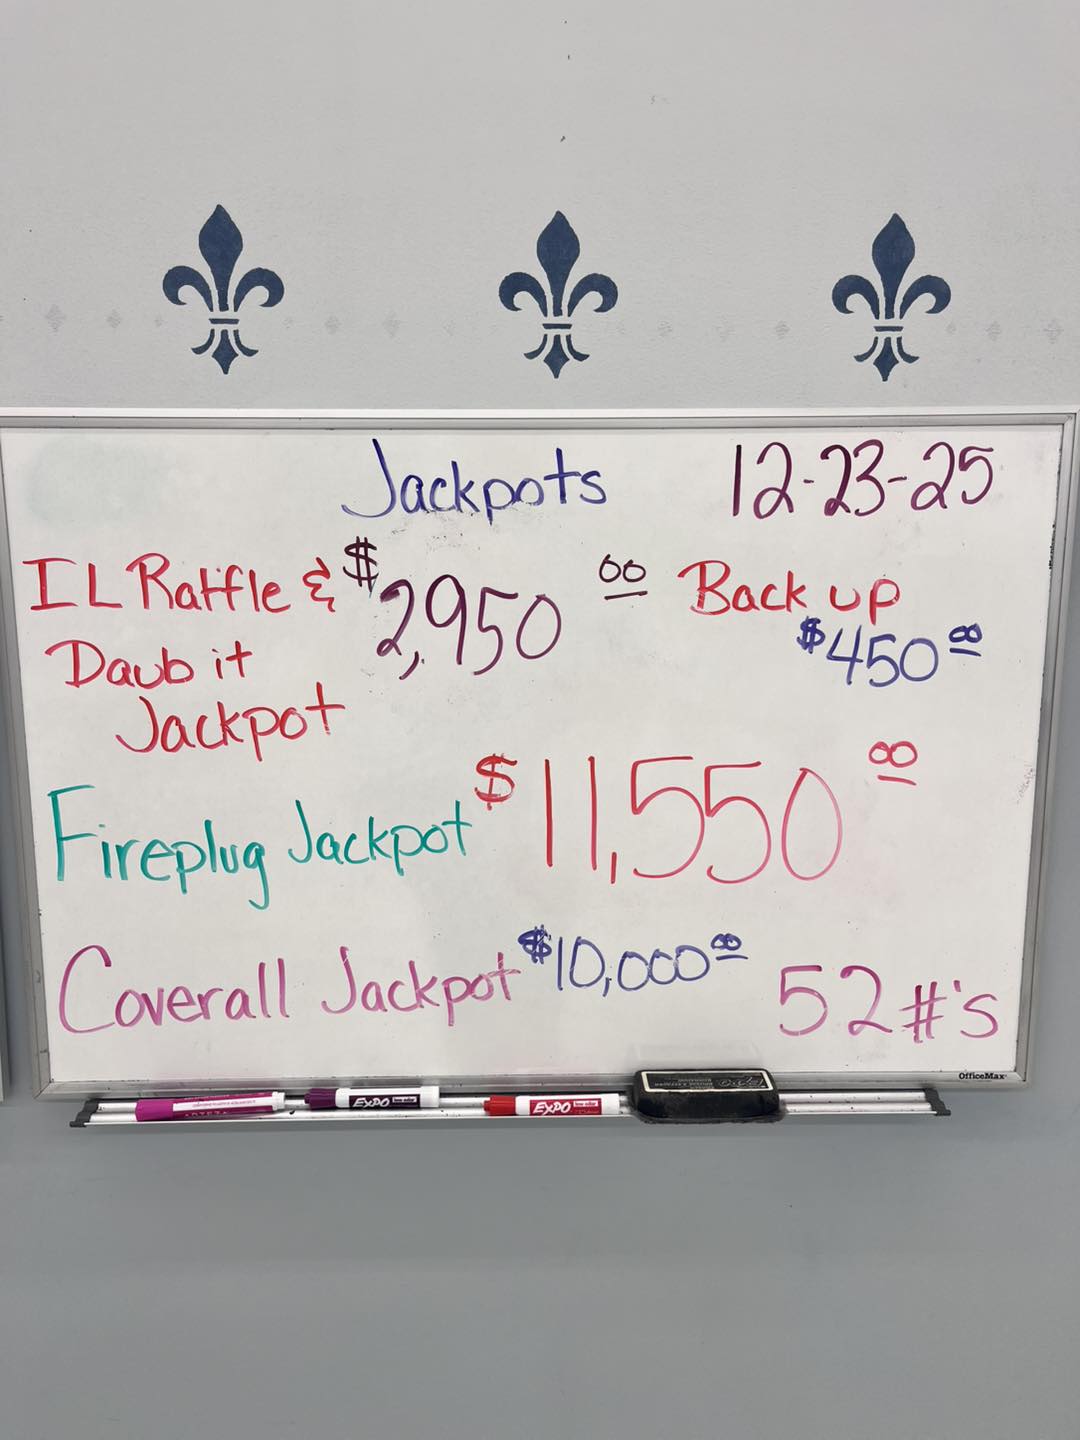 Jackpots 12-23-25
IL Raffle & $2,950 00 Back up
$450 00
Daub it
Jackpot
Fireplug Jackpot $11,550 00
Coverall Jackpot $10,000 00 52 #'s
OfficeMax
EXPO
EXPO